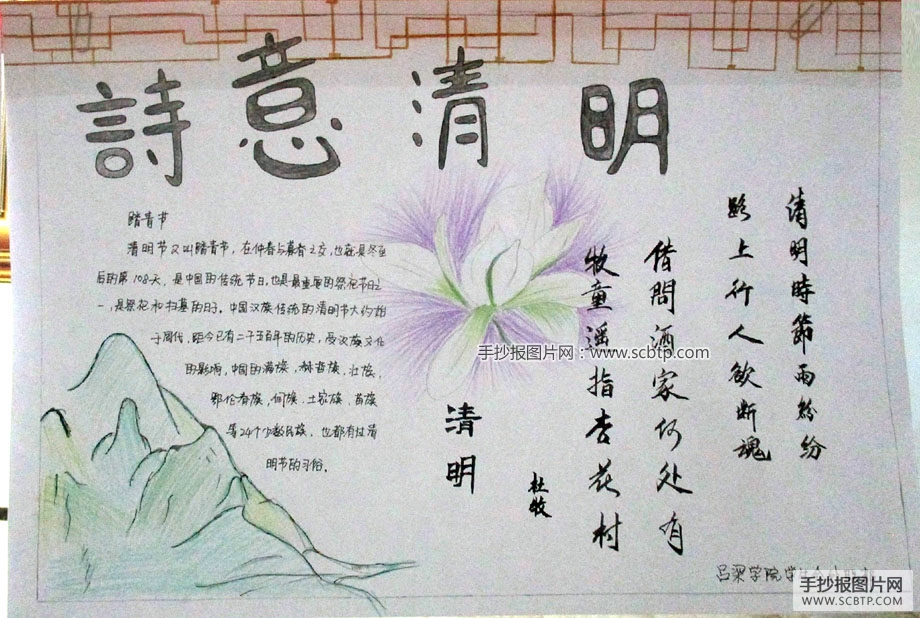 詩意清明
踏青节
清明节又叫踏青节，在仲春与暮春之交，也就是冬至
后的第108天，是中国的传统节日，也是最重要的祭祀节日之
一，是祭祀和扫墓的日子。中国汉族传统的清明节大约始
于周代，距今已有二千五百年的历史，受汉族文化
的影响，中国的满族，赫哲族，壮族，
鄂伦春族，侗族，土家族，苗族
等24个少数民族，也都有过清
明节的习俗。
清明時節雨紛纷
路上行人欲断魂
借問酒家何处有
牧童遥指杏花村
清明
杜牧
手抄报图片网：www.scbtp.com
吕梁学院
手抄报图片网
WWW.SCBTP.COM